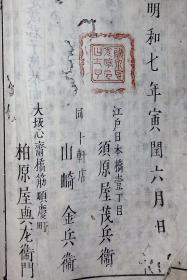 明和七年寅閏六月日
江戸日本橋壹丁目
須原屋茂兵衞
同十軒店
山崎金兵衞
大坂心齋橋筋順慶町
柏原屋與左衞門